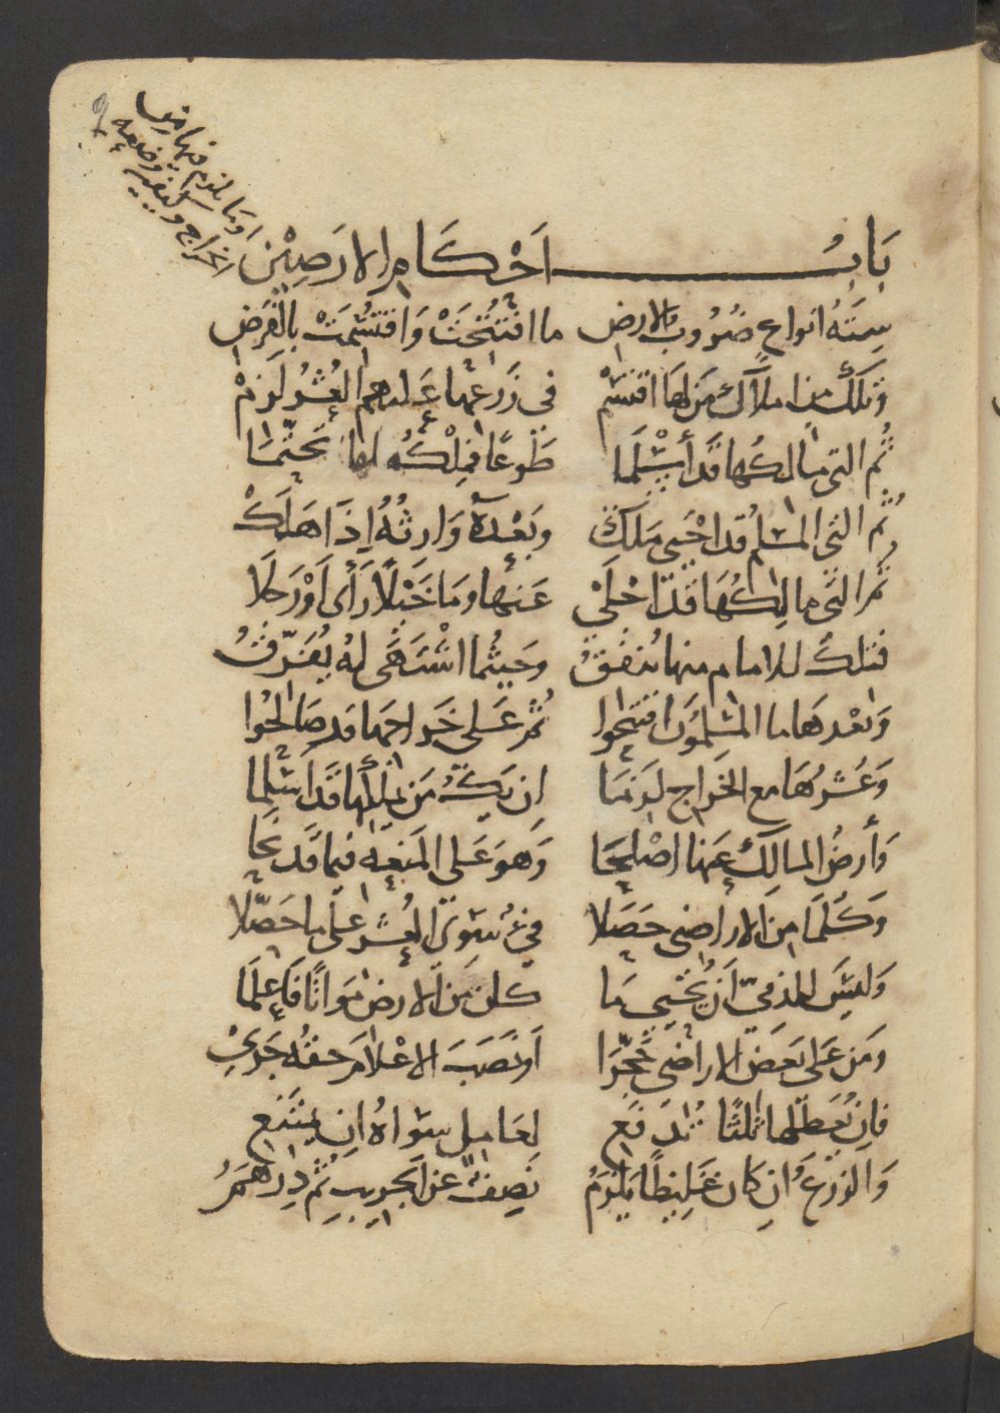 بَابُ احْكَامِ الارَضِيْنِ
وما يلزم فيها من
الخراج وكيفية وضعه
سِتَةُ انواعٍ ضُرُوبُ الارض ما افْتُتِحَتْ وَاقتُسِمَتْ بالفَرَضِ
فَتلكَ مِلاكٌ مَن لهَا اقتسَمْ في زَرعِها عَليهم العُشْرُ لَزِمْ
ثُم التي مالكُها قَد أسْلَمَا طَوعًا فمِلْكُه لها تحتّمَا
ثُم التي المسْلمُ قد احْيَى مَلَكْ وبَعْدهُ وَارِثُهُ إِذَا هَلَكْ
ثم التي مالِكُهَا قَد اجْلَى عَنها وما خَيْلًا رَأى اوْ رَجلَا
فتلكَ للامام منها يُنفقُ وحَيثُما اشْتَهَى لهُ يُفَرّقُ
وَبعْدهَا ما المسْلِمُونَ افتتحُوا ثُمَّ عَلى خَراجها قد صَالحُوا
وَعُشرُهَا مع الخَراج لَزِمَا ان يَكُ مَن يَمْلكُها قد اسْلَمَا
وَأرضُ المالكُ عنها اصْطلحَا وَهوَ عَلى المنعَه فيها قد نحَا
وَكُلمَا مِن الاراضِي حَصَلا في سِوَى العُشر على ما حَصّلا
وَليسَ للذمّي أنْ يُحْيي مَا كان مِن الارض مَوَاتًا فَاعلَمَا
ومَن عَلى بَعض الاراضي حَجّرَا اَو نَصَبَ الاعْلامَ حقُّه جَرى
فان يُعَطّلها ثلثًا تُدفع لعَامِلٍ سِوَاهُ ان يمْتَنِع
وَالزرعُ ان كان غَلِيظًا يَلزمُ نصفٌ عن الجريب ثم دِرهَمُ